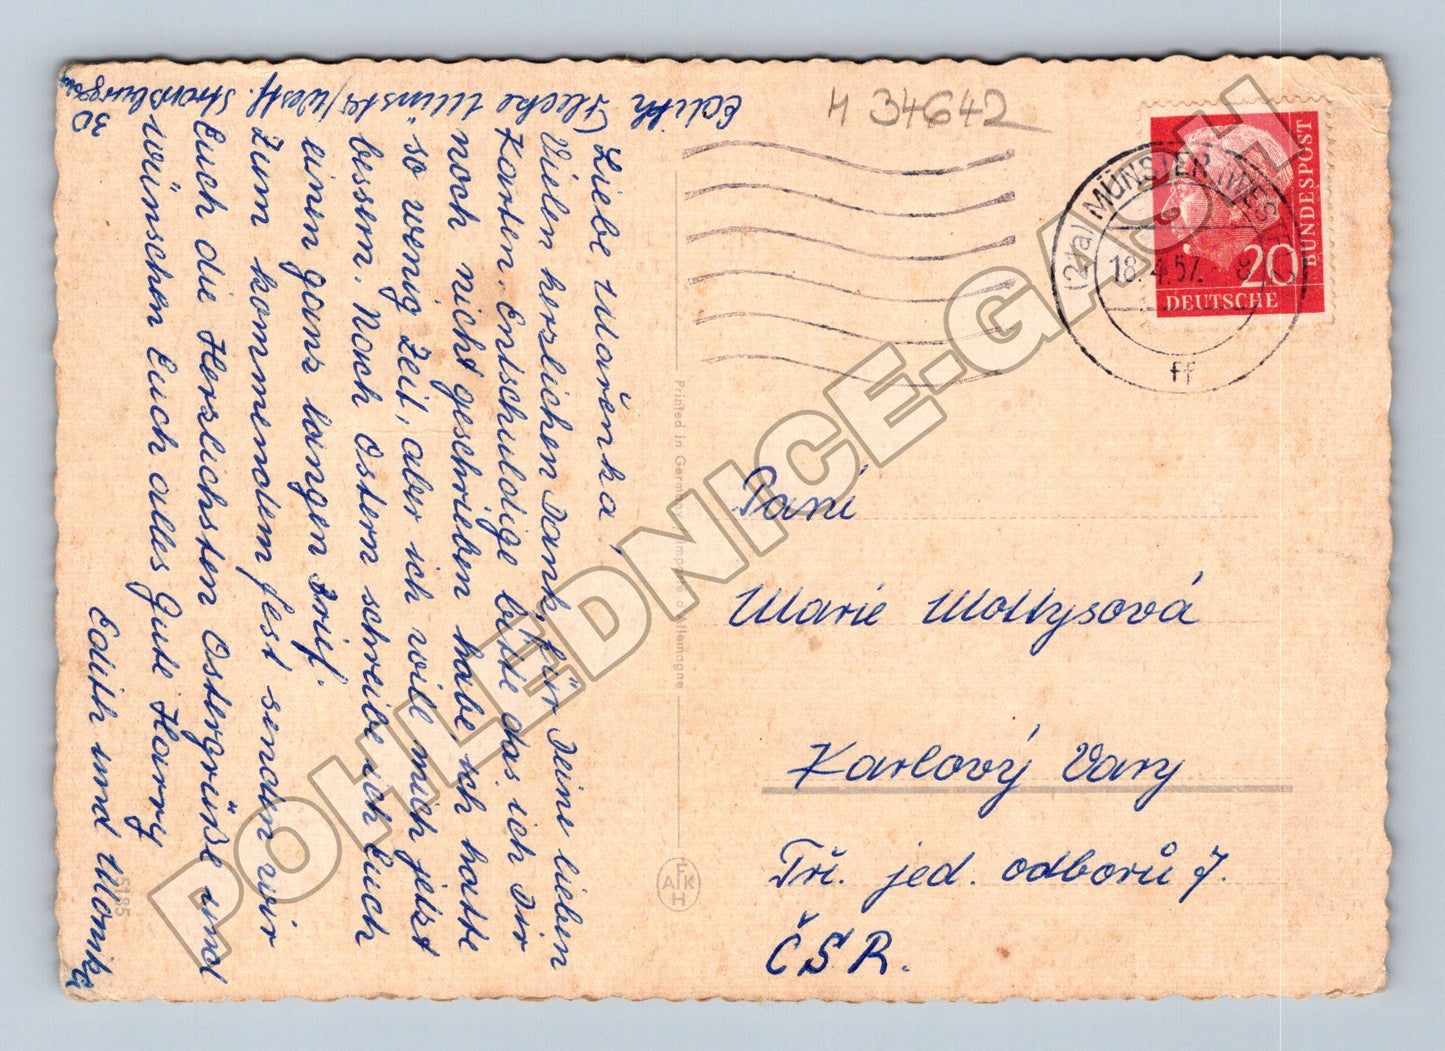 Edith Flecke Münster/Westf. Straßburgerstr
30
Liebe Mařenka,
Vielen herzlichen Dank, für Deine lieben
Karten. Entschuldige bitte das ich Dir
noch nicht geschrieben habe ich hatte
so wenig Zeit, aber ich will mich jetzt
bessern. Nach Ostern schreibe ich Euch
einen ganz langen Brief.
Zum kommendem fest senden wir
Euch die Herzlichsten Ostergrüße und
wünschen Euch alles Gute Harry
Edith und Monika
5185
Printed in Germany
Imprimé d'Allemagne
AFKH
H 34642
(21a) MÜNSTER (WESTF
18.4.57.
ff
20
DEUTSCHE
BUNDESPOST
Paní
Marie Moltysová
Karlový Vary
Tř. jed. odborů 7.
ČSR.
POHLEDNICE-GASH